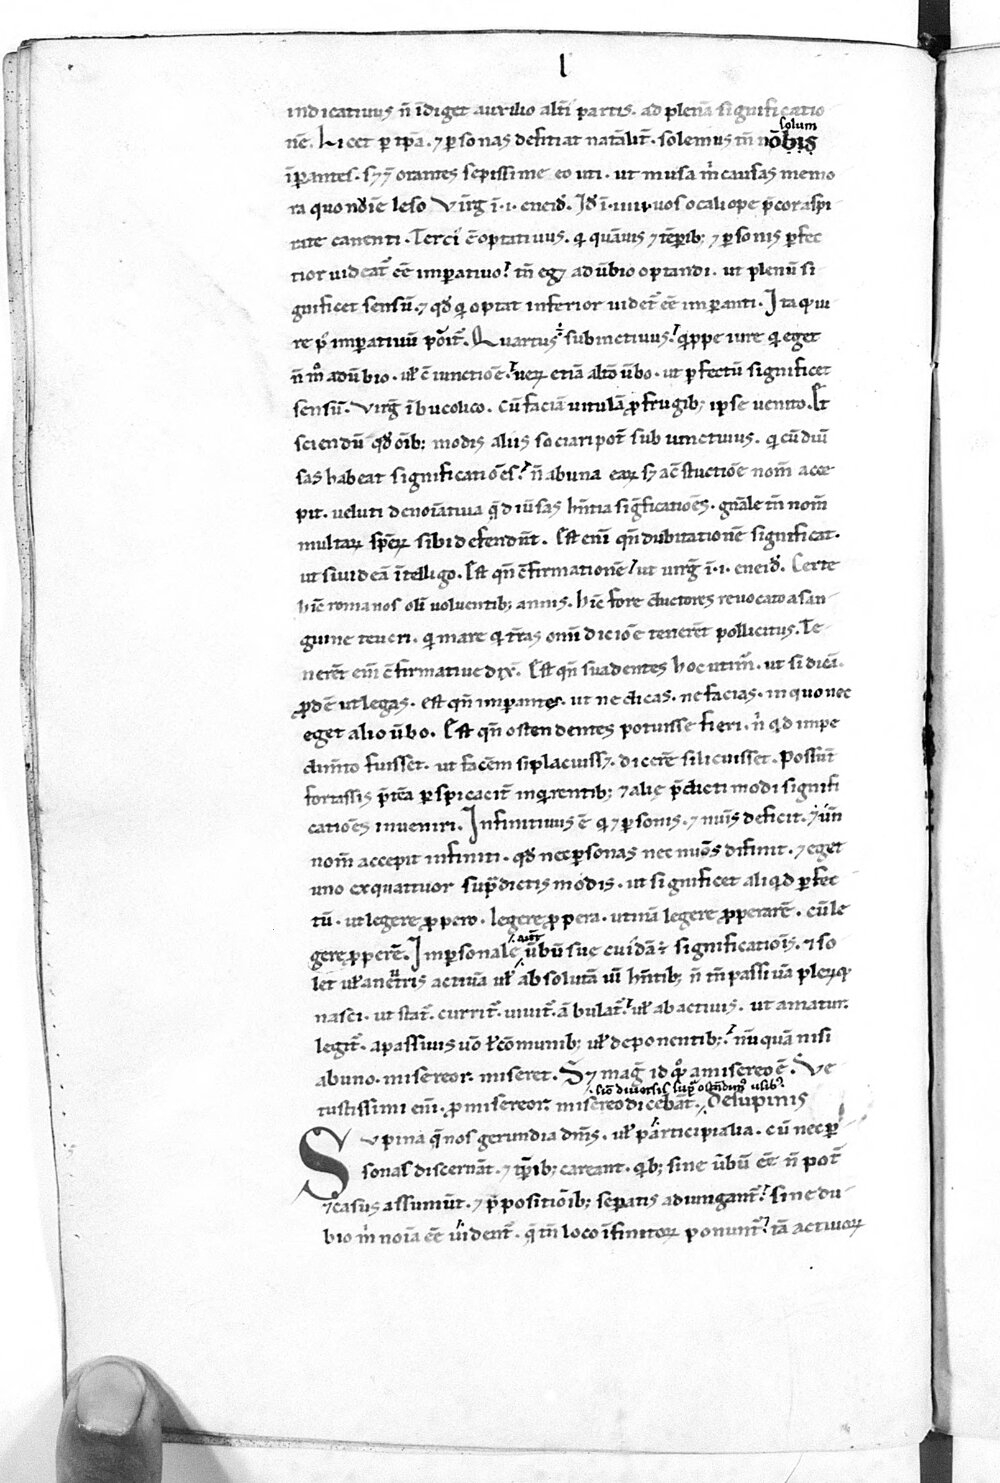 l
indicatiuus n̄ īdiget auxilio alt̄i partis. ad plenā significatio
nē. Licet p̱ tp̄a. ⁊ p̱sonas defitiat natālit̄. solemus tn̄ nōbis
solum
īpantes. sꝫ ⁊ orantes sepissime eo uti. ut musa m̄ causas memo
ra quo nūīe leso Virg̅ ī .i. eneid̄. Id̄ ī .iiii. uos o caliope p̄cor aspi
rate canenti. Terci ē optatiuus. qͥ quāuis ⁊ tēporib; ⁊ p̱sonis p̱fec
tior uideat̄ eē imp̱atiuo? tn̄ egꝫ aduūbio optandi. ut plenū si
gnificet sensū. ⁊ qd̄ qͥ optat inferior uidet̄ eē imp̱anti. Itaq̄ iu
re p̄ imp̱atiuū pōit̄. Quartus ÷ subiunctiuus? qͥppe iure qͥ eget
n̄ m̊ aduūbio. ul̄ ɔiunctiōe? ueꝝ etiā altō ūbo. ut p̱fectū significet
sensū. Virg̅ ī bucolico. Cū faciā uitulā ꝓ frugib; ipse uenito. Et
sciendū qd̄ oīb; modis aliis sociari pot̄ subiunctiuus. qͥ cū diū
sas habeat significatiōes? n̄ ab una eaꝝ sꝫ a ɔstructiōe nom̄ acce
pit. ueluti denoīatiua q̄ diūsas hn̄tia sig̅ficatiōes. gn̄ale tn̄ nom̄
multaꝝ spēꝝ sibi defendūt. Est enī qn̄ dubitationē significat.
ut si uideā ītelligo. Est qn̄ ɔfirmationē? ut uirg̅ ī .i. eneid̄. Certe
hīc romanos olī uoluentib; annis. hīc fore ductores reuocato a san-
guine teucri. qͥ mare qͥ t̄ras om̄i diciōe tenerēt pollicitus. Te-
nerēt em̄ ɔfirmatiue dix̄. Est qn̄ suadentes hoc utim̄. ut si dicā.
ꝓdē ut legas. est qn̄ imp̱antes. ut ne dicas. ne facias. in quo nec
eget alio ūbo. Est qn̄ ostendentes potuisse fieri. nͥ qͥd impe
dimīto fuisset. ut facēm si placuissꝫ. dicerē si licuisset. Possūt
fortassis p̄tea p̱spicacit̄ inqͥrentib; ⁊ alię p̄dicti modi signifi
catiōes inueniri. Infinitiuus ē qͥ ⁊ p̱sonis. ⁊ nuīs deficit. ⁊ ūn̄
nom̄ accepit infiniti. qd̄ nec p̱sonas nec nuōs difinit. ⁊ eget
uno ex quattuor sup̄dictis modis. ut significet aliqͥd p̱fec
tū. ut legere ꝓpero. legere ꝓpera. utinā legere ꝓperarē. cū le
gere ꝓperē. Imp̱sonale ūbū suę cuidā ÷ significatiōis. ⁊ so
aūt
let ul̄ a nēt̄ris actiuā ul̄ absolutā uī hn̄tib; n̄ tn̄ passiuā pleꝝq̄
nasci. ut stat̄. currit̄. uiuit̄. ābulat̄? ul̄ ab actiuis. ut amatur.
legit̄. a passiuis uō ł cōmunib; ul̄ deponentib;? nūquā nisi
ab uno. misereor. miseret. Sꝫ mag̅ id qͦꝫ a misereo ē. Ve
tustissimi em̄. ꝓ misereor. misereo dicebāt. De supinis
Supina q̄ nos gerundia dm̄s. ul̄ participialia. cū nec p̱
sonas discernāt. ⁊ tp̱ib; careant. qͥb; sine ūbū eē n̄ pot̄
⁊ casus assumūt. ⁊ p̄positiōib; sep̱atis adiungant̄? sine du-
bio m̄ noīa eē uident̄. q̄ tn̄ loco īfinitoꝝ ponunt̄? tā actiuoꝝ